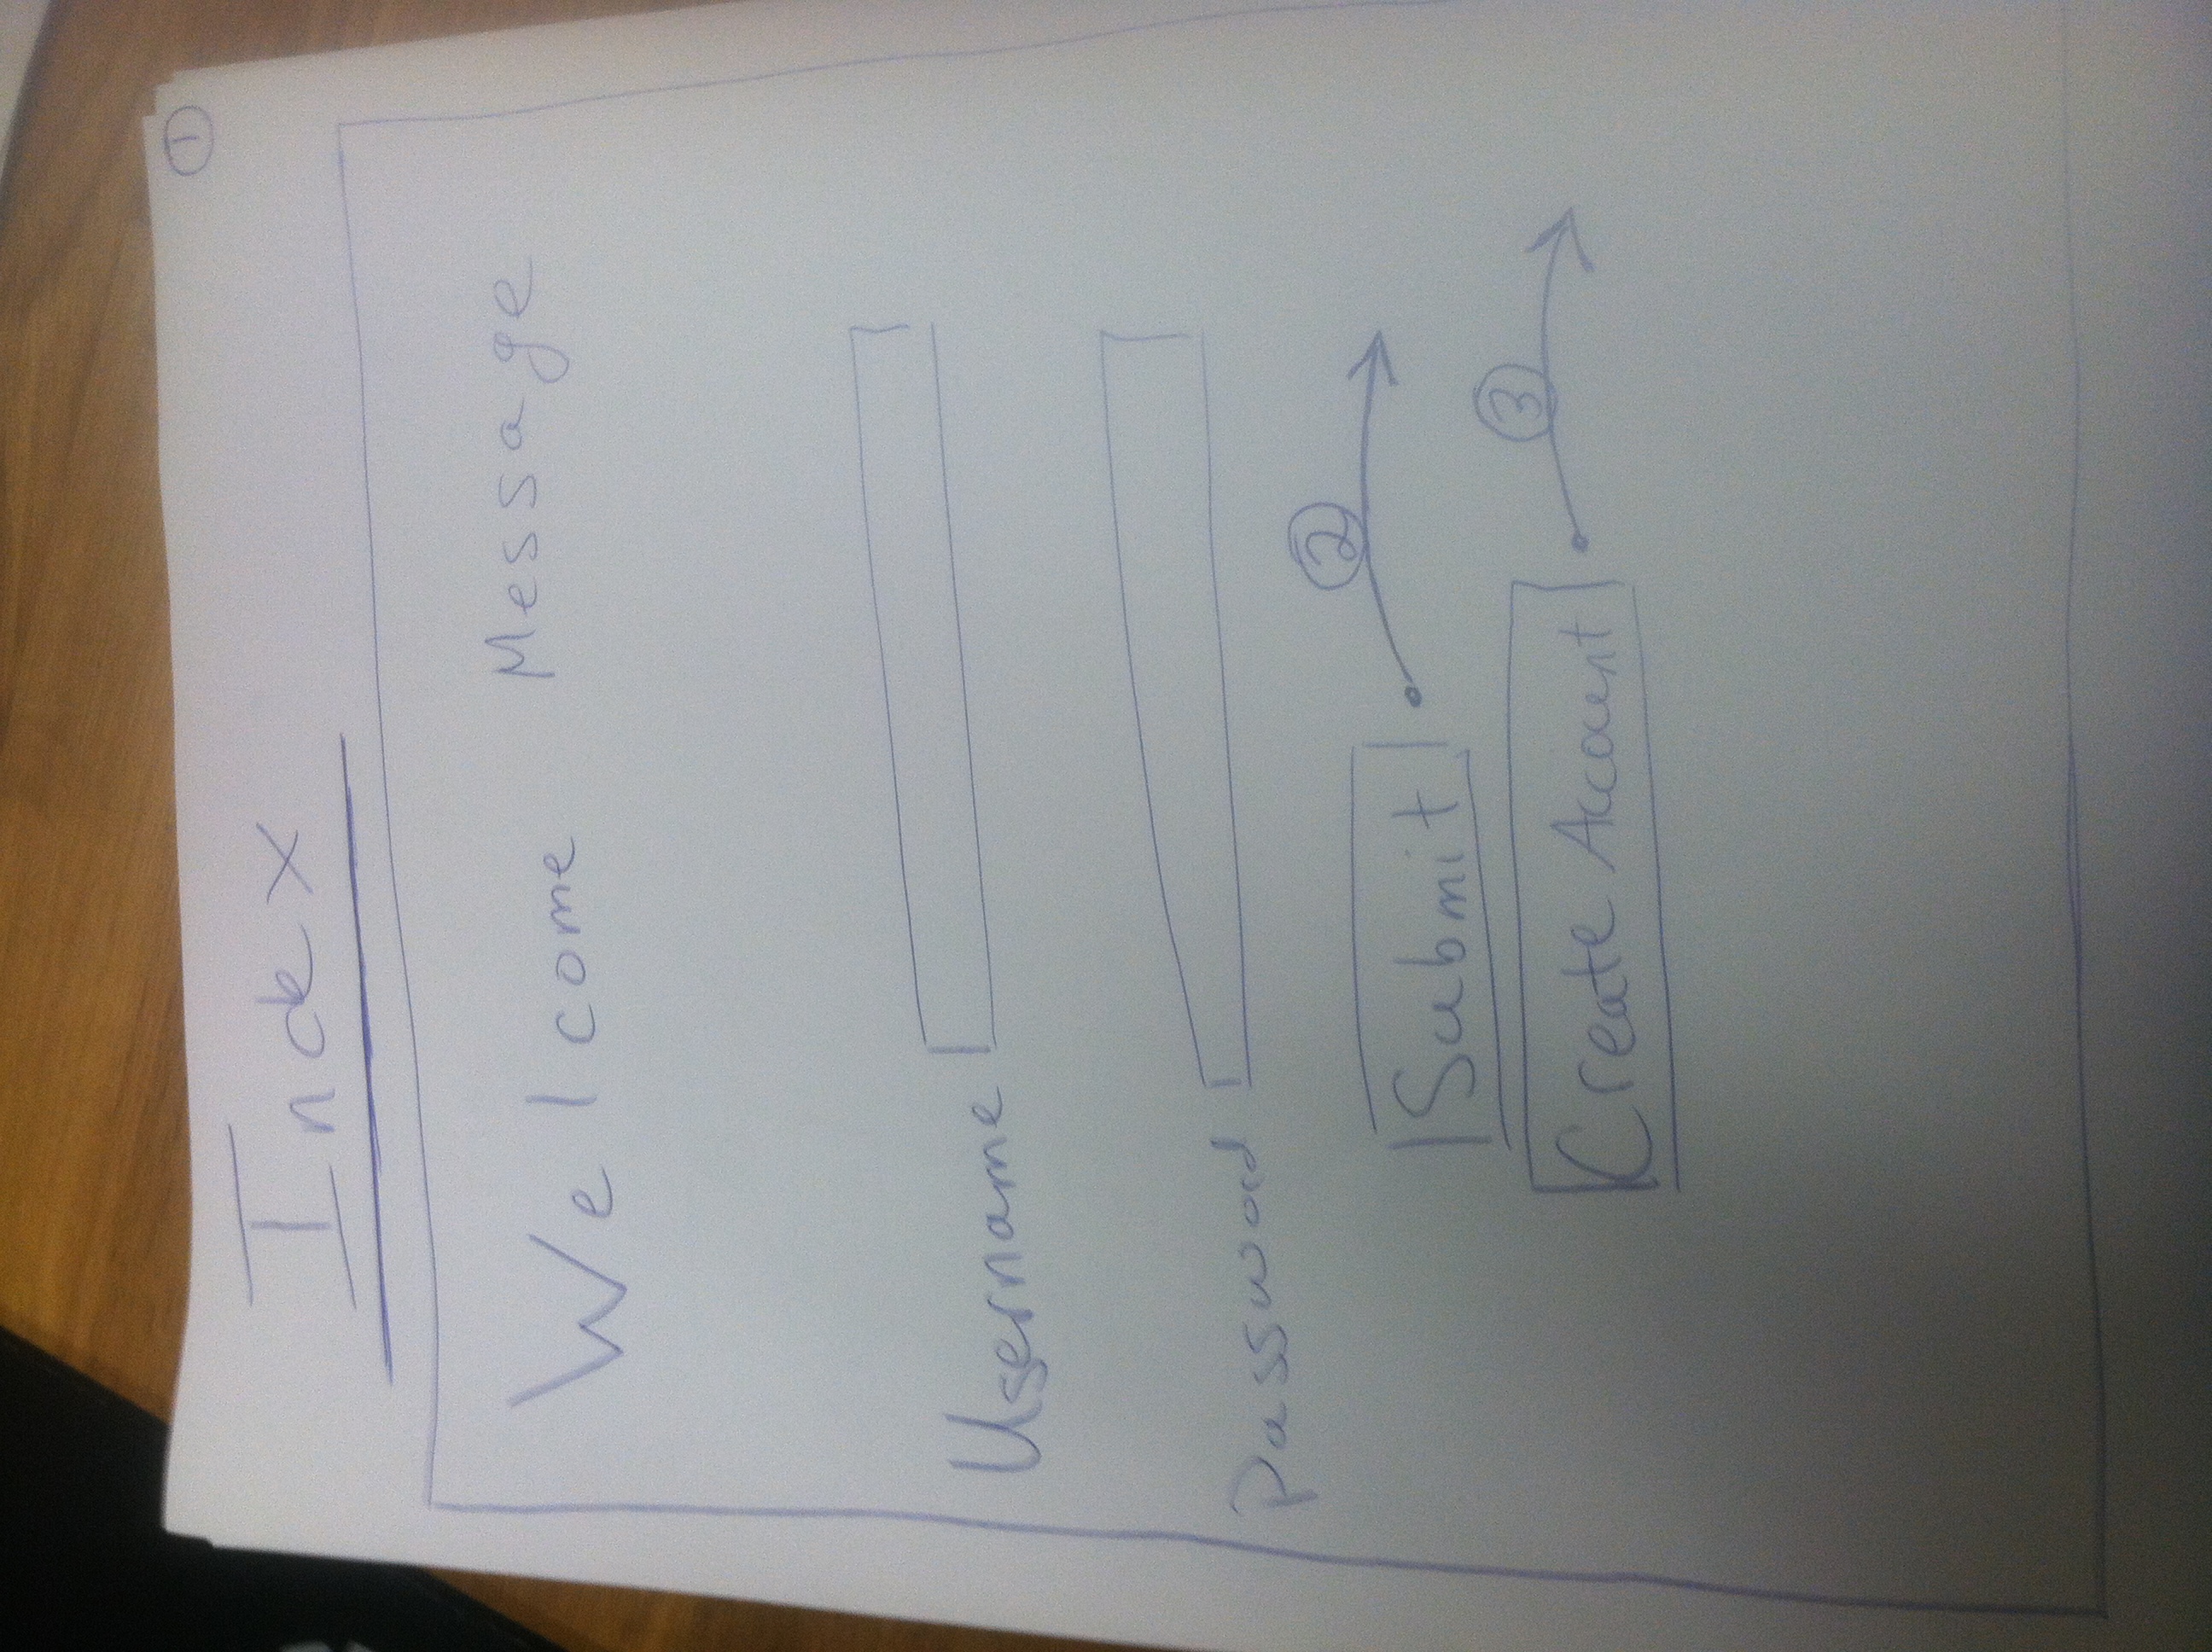 1
Index
Welcome Message
Username
Password
2
Submit
3
Create Account